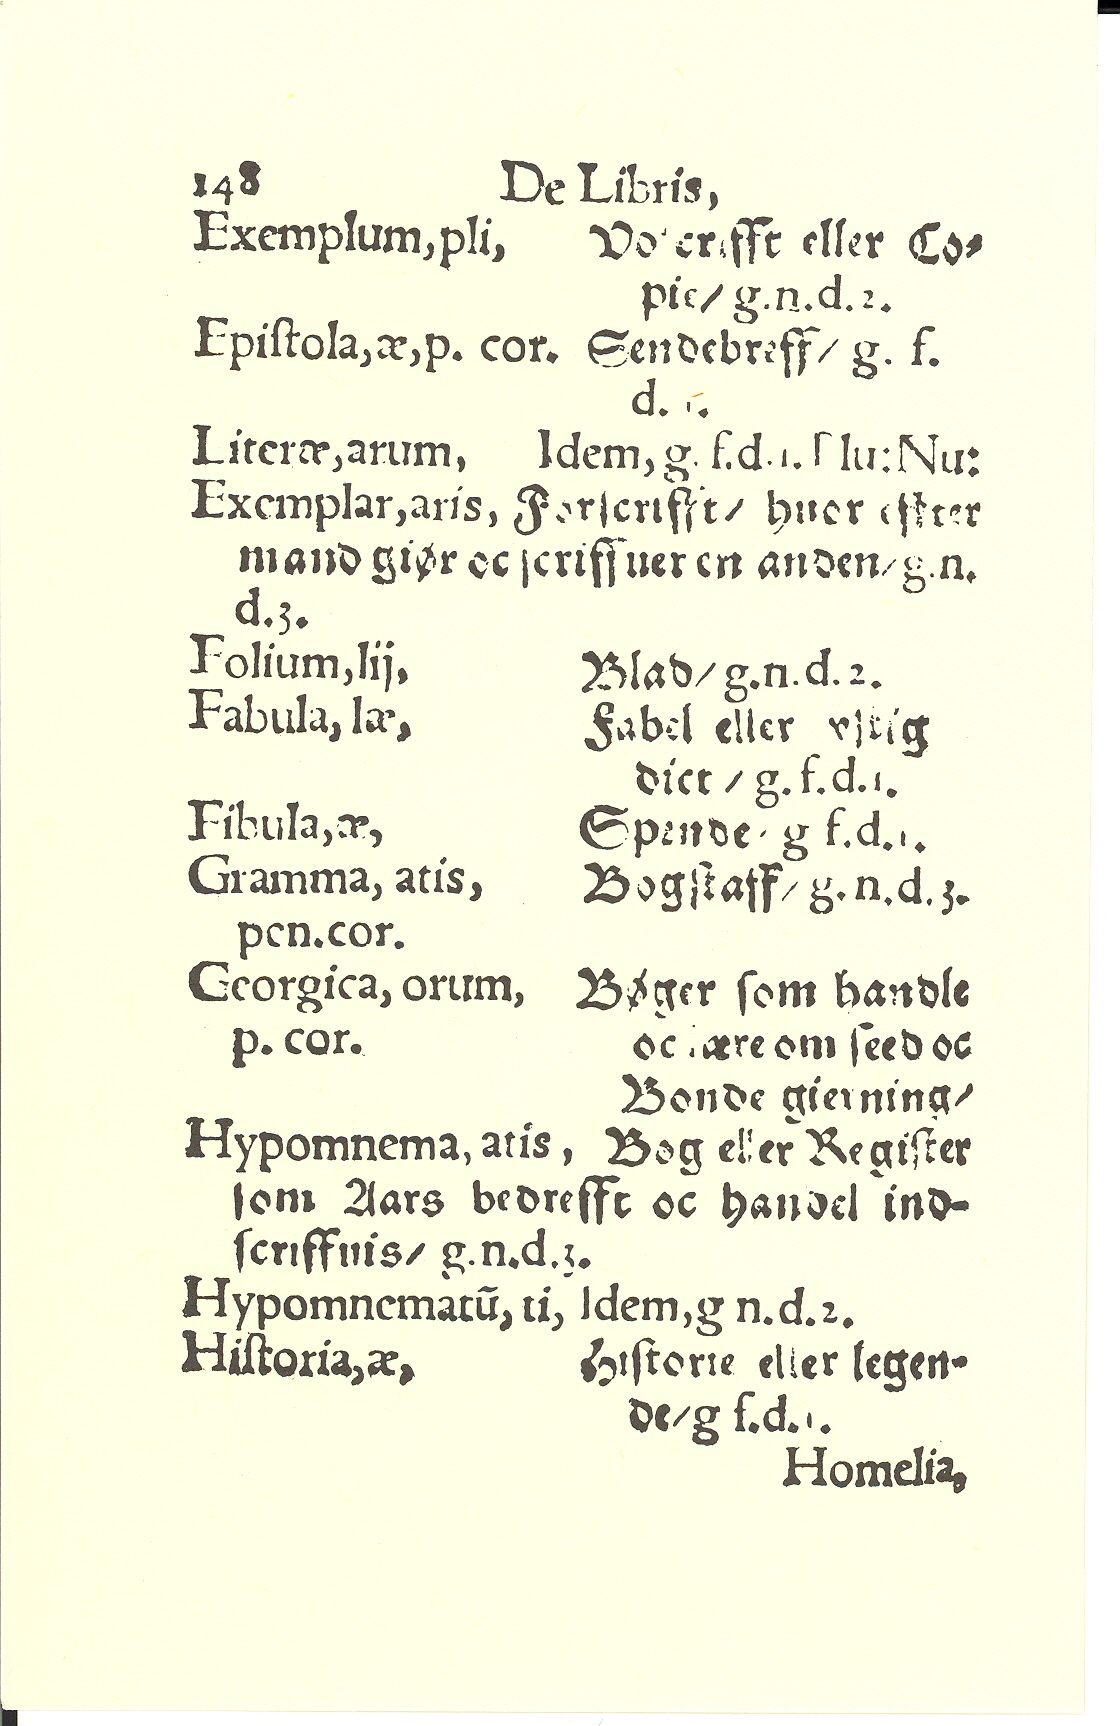 148 De Libris,
Exemplum, pli, eller Co⸗
pie/ g.n.d.2.
Epiſtola, æ, p. cor. Sendebreff/ g. f.
d. 1.
Literæ, arum, Idem, g. f.d.1. Plu: Nu:
Exemplar, aris, Forſcrifft/ huor effter
mand giør oc ſcriffuer en anden/ g.n.
d.3.
Folium, lij, Blad/ g.n.d.2.
Fabula, læ, Fabel eller
dict/ g.f.d.1.
Fibula, æ, Spende/ g f.d.1.
Gramma, atis, Bogſtaff/ g.n.d.3.
pen.cor.
Georgica, orum, Bøger ſom handle
p. cor. oc lære om ſeed oc
Bonde gierning/
Hypomnema, atis, Bog eller Regiſter
ſom Aars bedrefft oc handel ind⸗
ſcriffuis/ g.n.d.3.
Hypomnematū, ti, Idem, g n.d.2.
Hiſtoria, æ, Hiſtorie eller legen⸗
de/ g f.d.1.
Homelia,